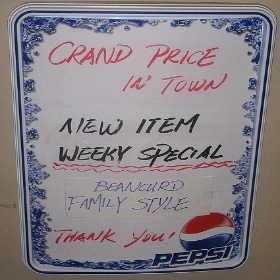 GRAND PRICE
IN TOWN
NEW ITEM
WEEKY SPECIAL
BEANCURD
FAMILY STYLE
THANK YOU!
PEPSI